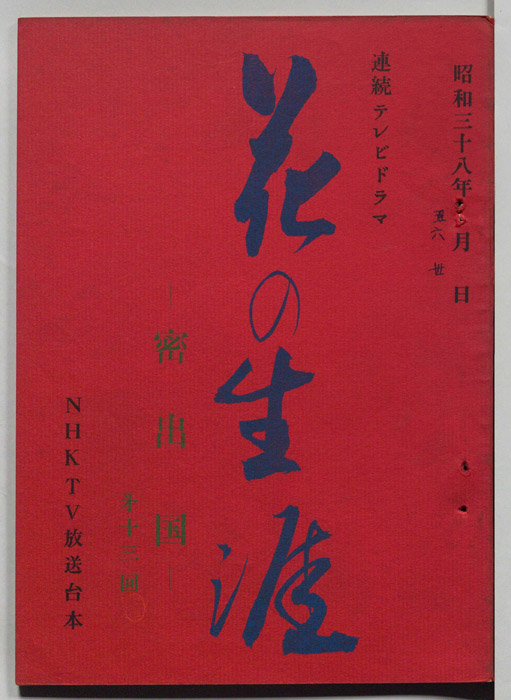 昭和三十八年 月 日
六 廿
連続テレビドラマ
花の生涯
―密出国―
第十三回
NHKTV放送台本